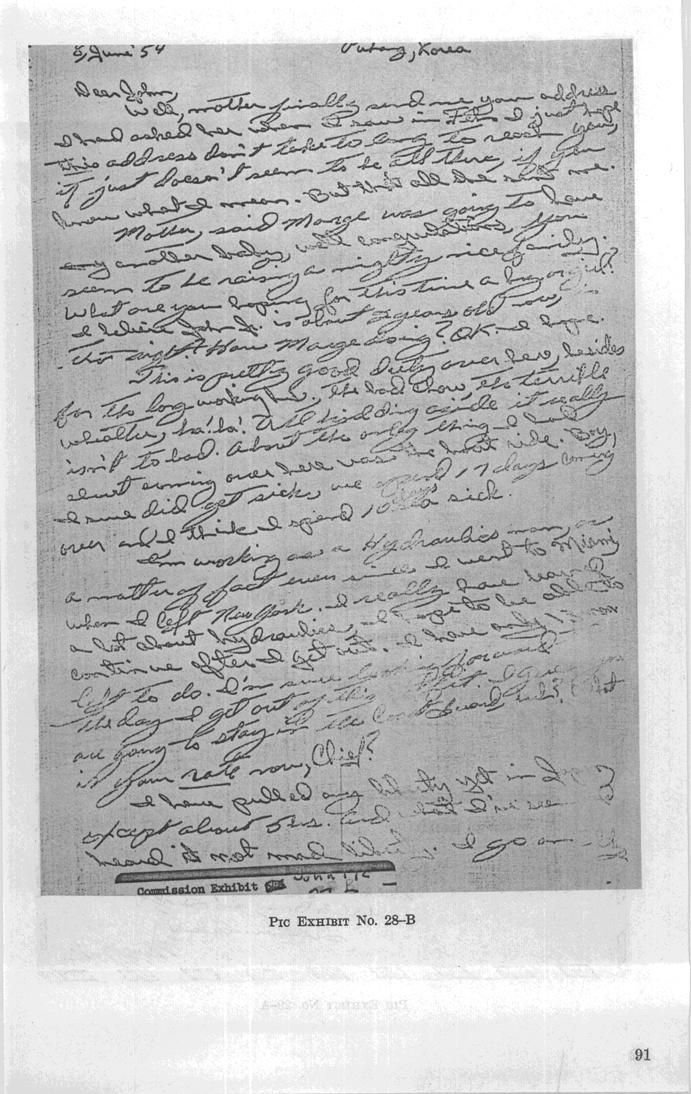 5, June '54 Korea
Dear John,
Well, mother finally send me your address
I had asked her when I saw in I just hope
this address don't take to long to reach you,
it just doesn't seem to be all there, if you
know what I mean. But that all she sent me.
Mother, said Marge was going to have
another baby, well congratulations, you
seem to be raising a mighty nice family.
What are you hoping for this time a boy or girl?
I believe John Jr. is about 2 years old now,
that right? How Marge doing? OK. I hope.
This is pretty good Duty over here, besides
for the long working hrs, the bad chow, the terrible
weather, ha! ha! All kidding aside it really
isn't to bad. About the only thing I had
about coming over here was the boat ride. Boy,
I sure did get sick, we spend 17 days coming
over and I think I spend 10 days sick.
I'm working as a Hydraulics man, as
a matter of fact ever since I went to Miami
when I left New York. I really have learned
a lot about hydraulics, I hope to be able to
continue after I get out. I have only
left to do. I'm sure looking forward
the day I get out of this I guess you
are going to stay in the Coast Guard, huh? What
is your rate now, Chief?
I have pulled any liberty yet in
except about 5 hrs. And what I've seen
heard it's not much I go on
Commission Exhibit
PIC EXHIBIT No. 28–B
91